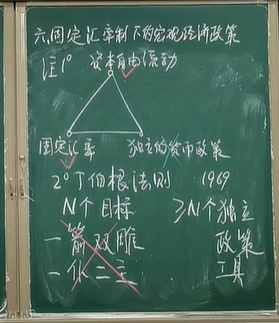 六.固定汇率制下的宏观经济政策
注1° 资本自由流动
固定汇率 独立的货币政策
2°丁伯根法则 1969
N个目标 ≥N个独立
一箭双雕 政策
一仆二主 工具